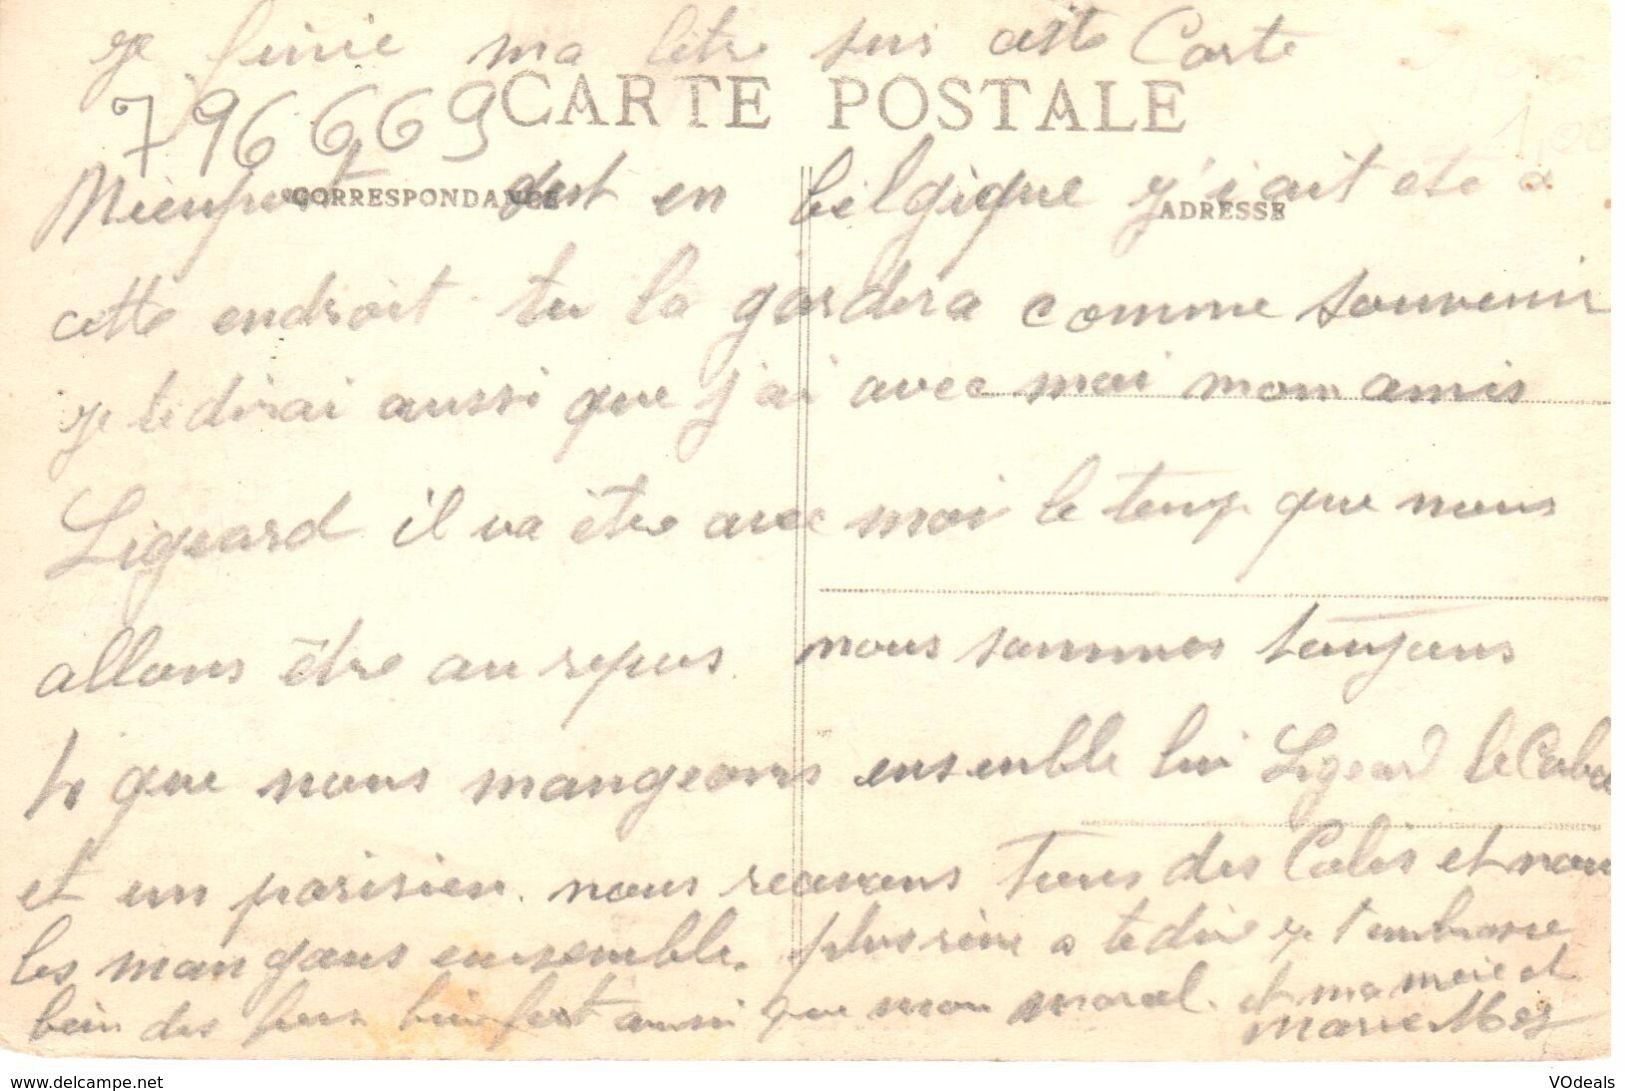 je finie ma lètre sur cette Carte
796669 CARTE POSTALE
1,00
Nieuport qest en belgique j'iait ete a
CORRESPONDANCE
ADRESSE
cette endroit tu la gardera comme souvenir
je te dirai aussi que j'ai avec moi mom amis
Ligeard il va être avec moi le temp que nous
allons être au repos nous sommes toujours
4 que nous mangeons ensemble lui Ligeard le
et un parisien. nous recevons tous des Colis et nous
les mangons ensemble. plus rien a te dire je t'embrasse
bien des fois bien fort aussi que mon marcel. et ma mère et
Marie
www.delcampe.net
VOdeals